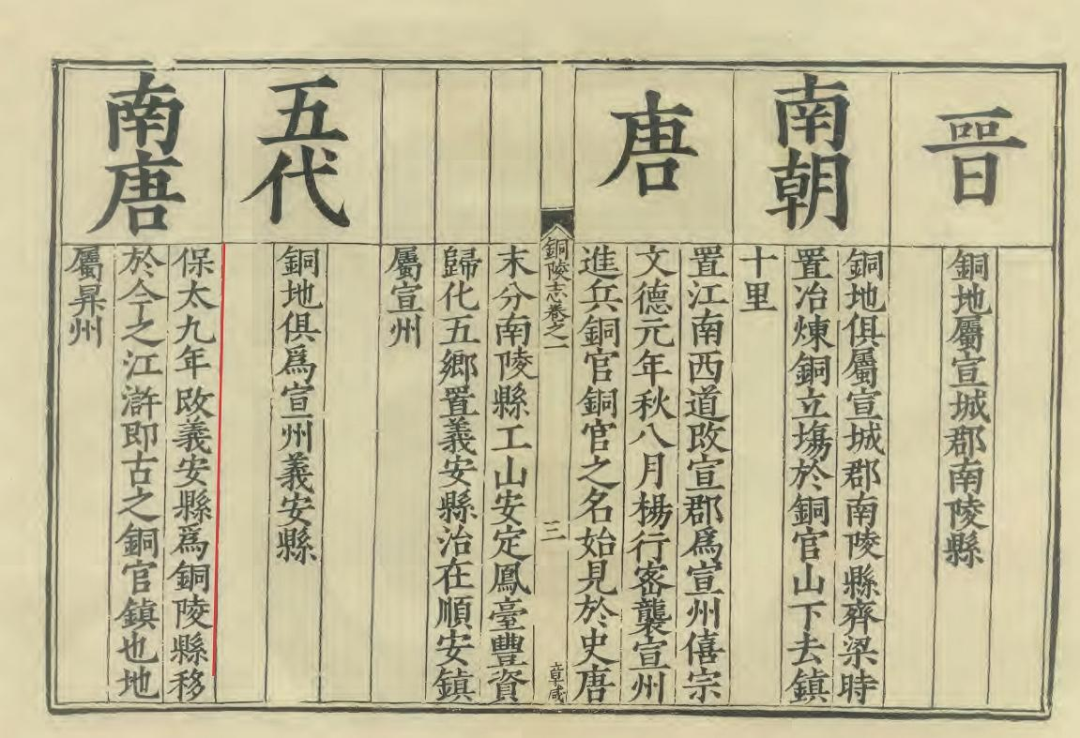 晋
銅地屬宣城郡南陵縣
南朝
銅地俱屬宣城郡南陵縣齊梁時
置冶煉銅立塲於銅官山下去鎮
十里
唐
置江南西道改宣郡爲宣州僖宗
文德元年秋八月楊行密襲宣州
進兵銅官銅官之名始見於史唐
銅陵志卷之一
三
章咸
末分南陵縣工山安定鳳臺豐資
歸化五鄉置義安縣治在順安鎮
屬宣州
五代
銅地俱爲宣州義安縣
南唐
保太九年改義安縣爲銅陵縣移
於今之江滸即古之銅官鎮也地
屬昇州